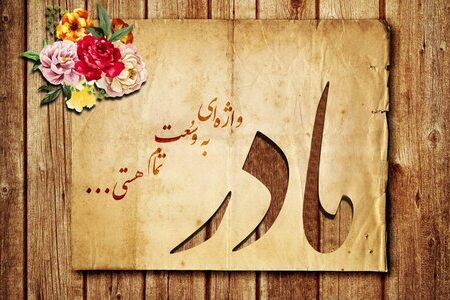 مادر
واژه‌ای
به وسعت
تمام
هستی...